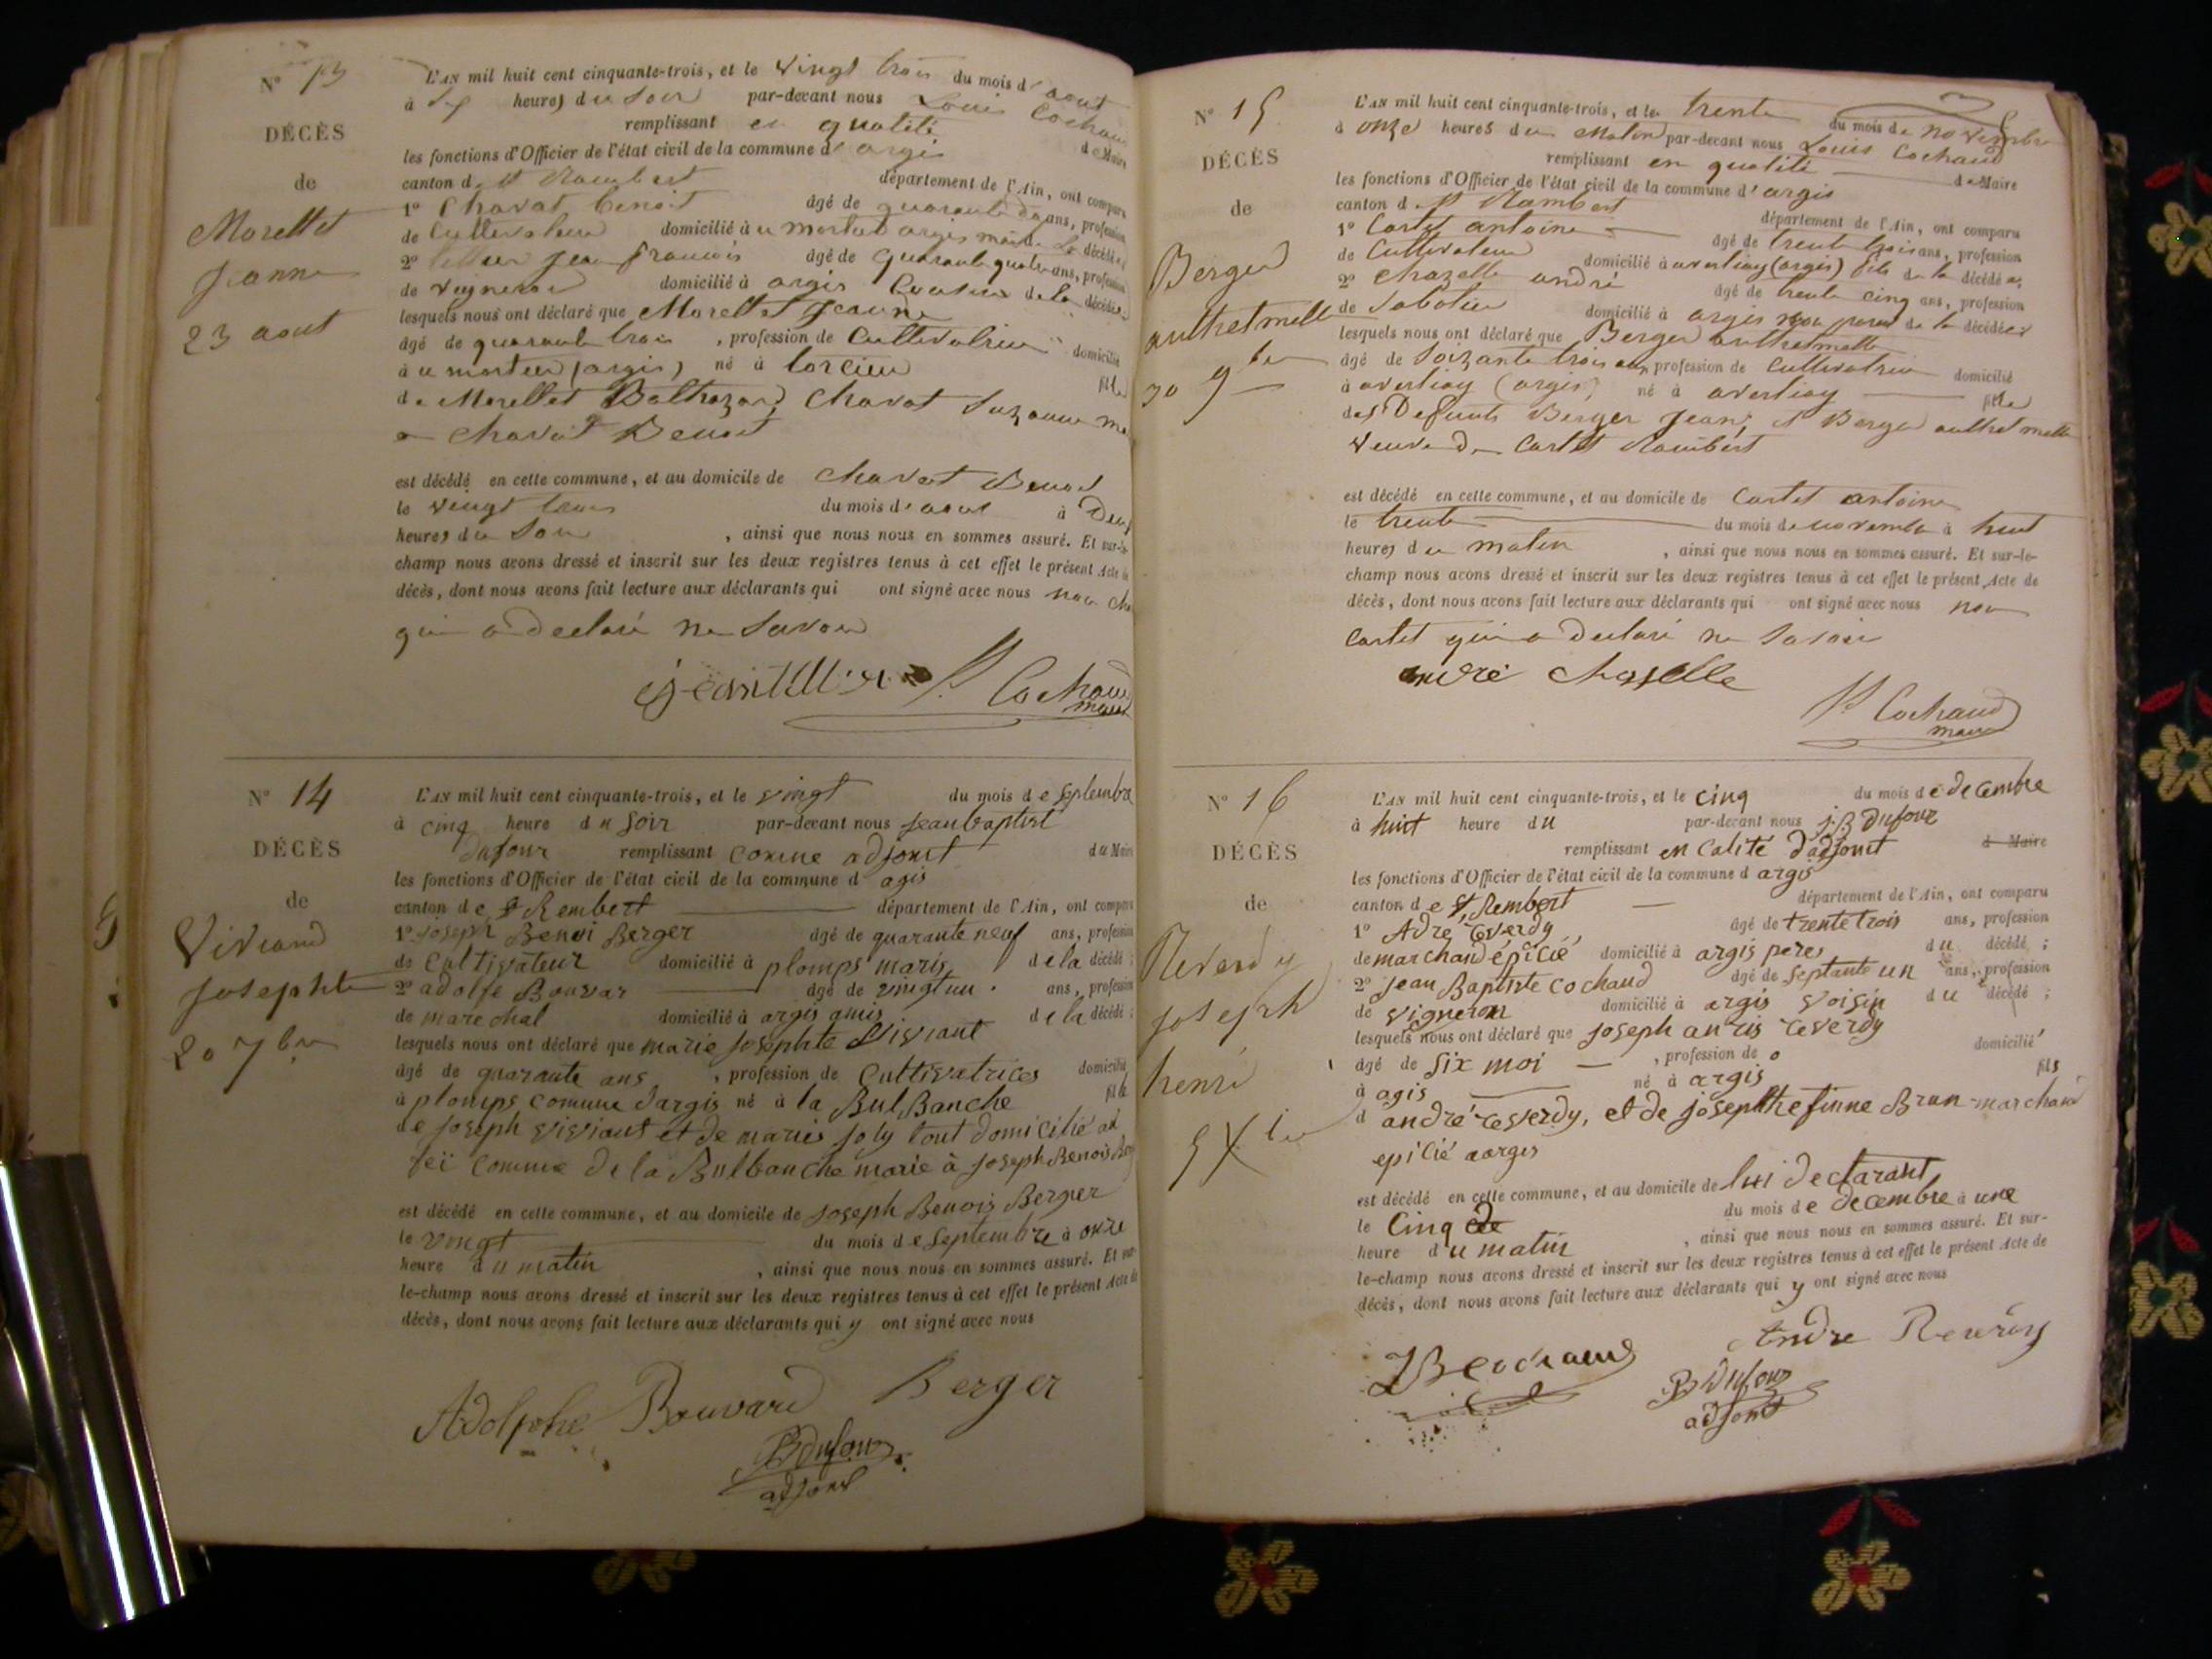 N° 13
DÉCÈS
de
Morellet
Jeanne
23 aout
L'AN mil huit cent cinquante-trois, et le vingt trois du mois d'aout
à heures du soir par-devant nous Louis Cochaud
remplissant en qualité de Maire
les fonctions d'Officier de l'état civil de la commune d'argis
canton de St Rambert département de l'Ain, ont comparu
1° Chavat benoit âgé de quarante ans, profession
de Cultivateur domicilié à argis mari de la décédée
2° jean françois âgé de quarante quatre ans, profession
de vigneron domicilié à argis de la décédée
lesquels nous ont déclaré que Morellet Jeanne
âgé de quarante trois , profession de Cultivatrice domicilié
à (argis) né à torcieu fille
de Morellet Balthazard Chavat Suzanne
a Chavat Benoit
est décédé en cette commune, et au domicile de Chavat Benoit
le vingt trois du mois d'aout à Deux
heures du Soir , ainsi que nous nous en sommes assuré. Et sur-le-
champ nous avons dressé et inscrit sur les deux registres tenus à cet effet le présent Acte de
décès, dont nous avons fait lecture aux déclarants qui ont signé avec nous non
qui a declaré ne Savoir
Ls Cochaud
maire
N° 14
DÉCÈS
de
Viviand
Josephte
20 7bre
L'AN mil huit cent cinquante-trois, et le vingt du mois de Septembre
à cinq heure du soir par-devant nous jeanbaptist
dufour remplissant comme adjoint du Maire
les fonctions d'Officier de l'état civil de la commune d agis
canton de St Rembert département de l'Ain, ont comparu
1° joseph Benoi Berger âgé de quarante neuf ans, profession
de Cultivateur domicilié à plomps maris de la décédé ;
2° adolfe Bouvar âgé de vingt un ans, profession
de marechal domicilié à argis amis de la décédé ;
lesquels nous ont déclaré que marie josephte Viviant
âgé de quarante ans , profession de Cultivatrices domicilié
à plomps comune dargis né à la Bul Banche fille
de joseph viviant et de maries joly tout domicilié
comme de la Bulbanche marie à joseph Benois
est décédé en cette commune, et au domicile de joseph Benois Berger
le vingt du mois de Septembre à onze
heure du matin , ainsi que nous nous en sommes assuré. Et sur-
le-champ nous avons dressé et inscrit sur les deux registres tenus à cet effet le présent Acte de
décès, dont nous avons fait lecture aux déclarants qui y ont signé avec nous
Adolphe Bouvard Berger
JBDufour
adjoint
N° 15
DÉCÈS
de
Berger
anthelmette
30 9bre
L'AN mil huit cent cinquante-trois, et le trente du mois de novembre
à onze heures du matin par-devant nous Louis Cochaud
remplissant en qualité de Maire
les fonctions d'Officier de l'état civil de la commune d'argis
canton de St Rambert département de l'Ain, ont comparu
1° Cartet antoine âgé de trente trois ans, profession
de Cultivateur domicilié à averliay (argis) fils de la décédée,
2° chazelle andré âgé de trente cinq ans, profession
de Sabotier domicilié à argis non parent de la décédée
lesquels nous ont déclaré que Berger anthelmette
âgé de soixante trois ans, profession de Cultivatrice domicilié
à averliay (argis) né à averliay fille
des Defunts Berger Jean, et Berger anthelmette
veuve de Cartet Rambert
est décédé en cette commune, et au domicile de Cartet antoine
le trente du mois de novembre à huit
heures du matin , ainsi que nous nous en sommes assuré. Et sur-le-
champ nous avons dressé et inscrit sur les deux registres tenus à cet effet le présent Acte de
décès, dont nous avons fait lecture aux déclarants qui ont signé avec nous non
Cartet qui a declaré ne Savoir
andré chazelle
Ls Cochaud
maire
N° 16
DÉCÈS
de
Reverdy
joseph
henri
5 Xbre
L'AN mil huit cent cinquante-trois, et le cinq du mois de decembre
à huit heure du par-devant nous j.B Dufour
remplissant en calité dadjoint de Maire
les fonctions d'Officier de l'état civil de la commune d argis
canton de St Rembert département de l'Ain, ont comparu
1° Adré reverdy âgé de trente trois ans, profession
de marchand épicié domicilié à argis peres du décédé ;
2° jean Baptiste cochaud âgé de Septante un ans, profession
de vigneron domicilié à argis voisin du décédé ;
lesquels nous ont déclaré que joseph anris reverdy
âgé de six moi , profession de o domicilié
à agis né à argis fils
d andré reverdy, et de josephtefinne Brun marchand
epicié aarges
est décédé en cette commune, et au domicile de lui declarant
le Cinq de du mois de decembre à une
heure du matin , ainsi que nous nous en sommes assuré. Et sur-
le-champ nous avons dressé et inscrit sur les deux registres tenus à cet effet le présent Acte de
décès, dont nous avons fait lecture aux déclarants qui y ont signé avec nous
Andre Reverdy
JBCochaud
JBDufour
adjoint